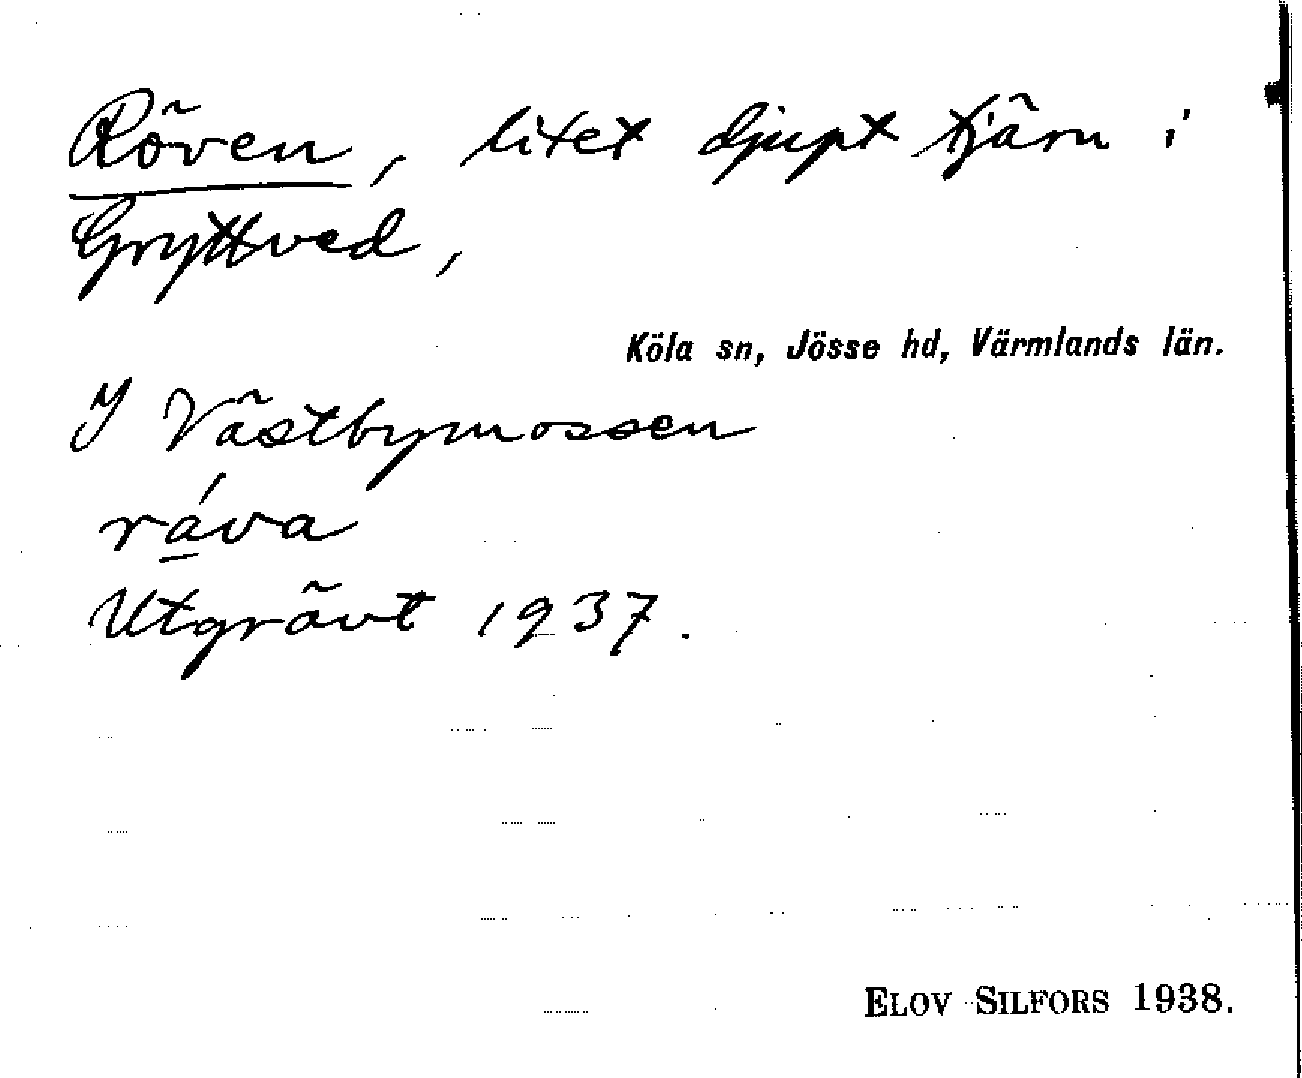 Röven, litet djupt tjärn i
Gryttved,
Köla sn, Jösse hd, Värmlands län.
I Västbymossen
rá̱va
Utgrävt 1937.
ELOV SILFORS 1938.